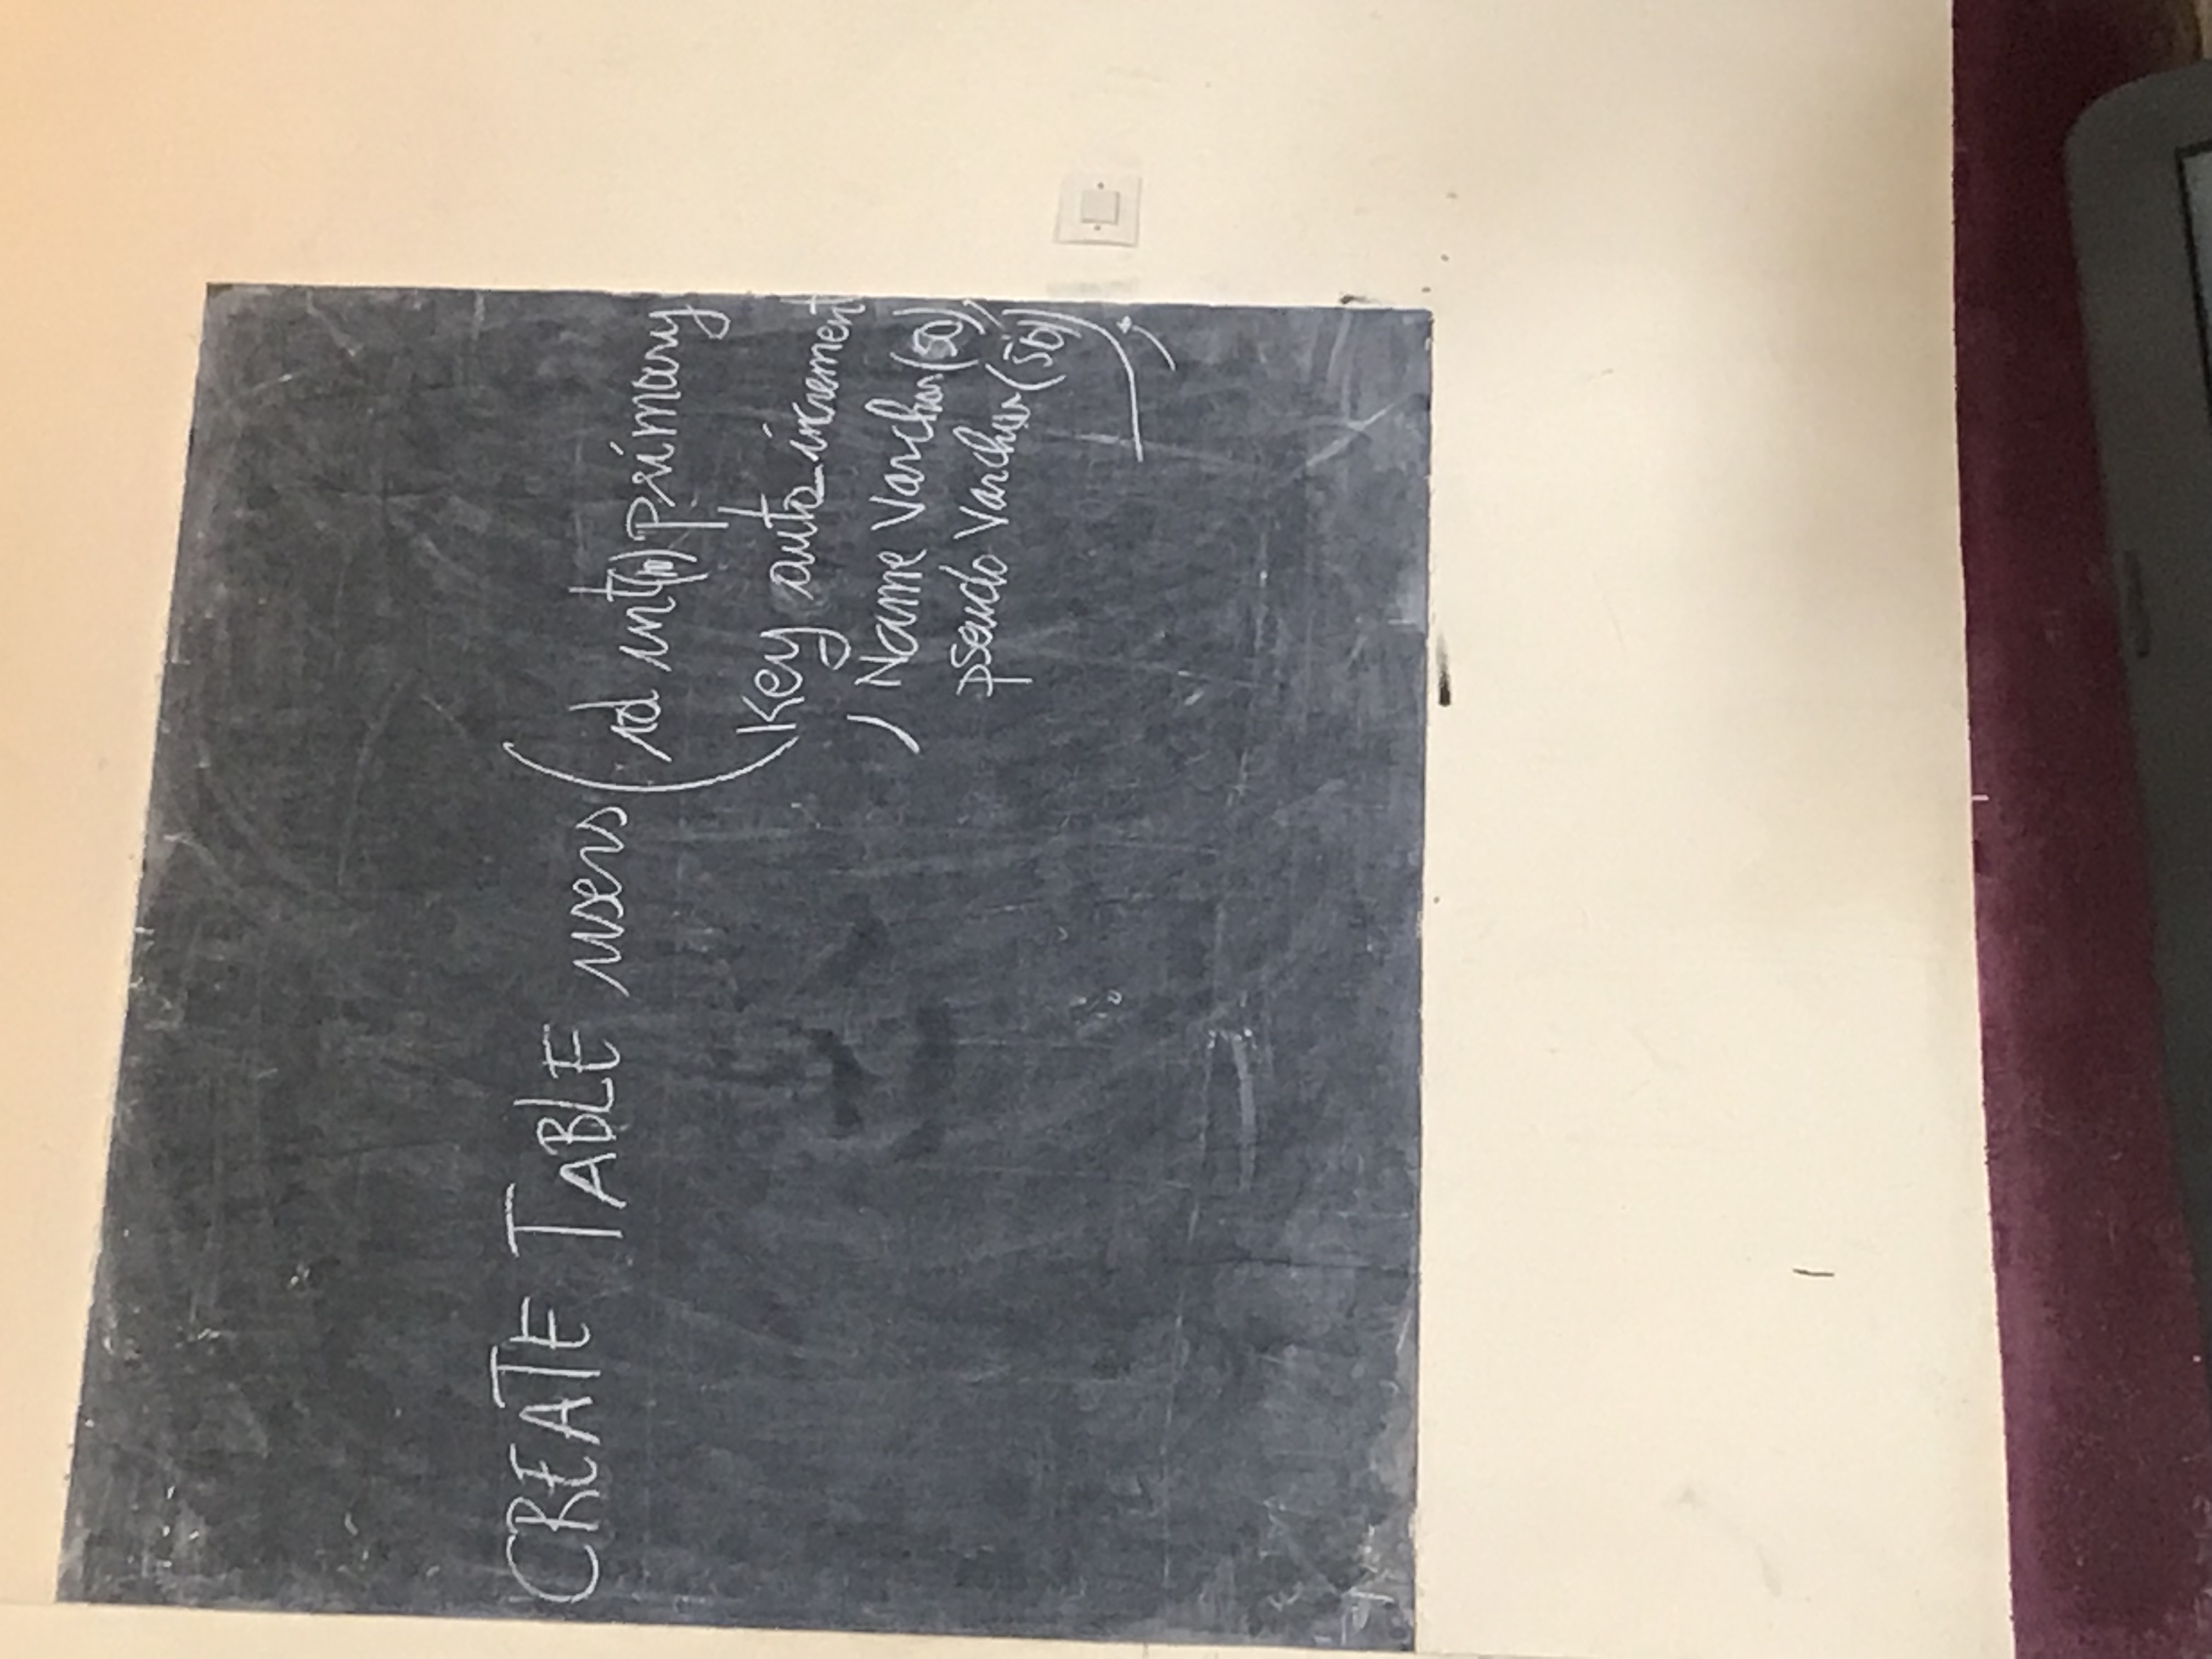 CREATE TABLE users (id int(10) primary
Key auto_increment
, Name Varchar(50),
pseudo Varchar(50)
);